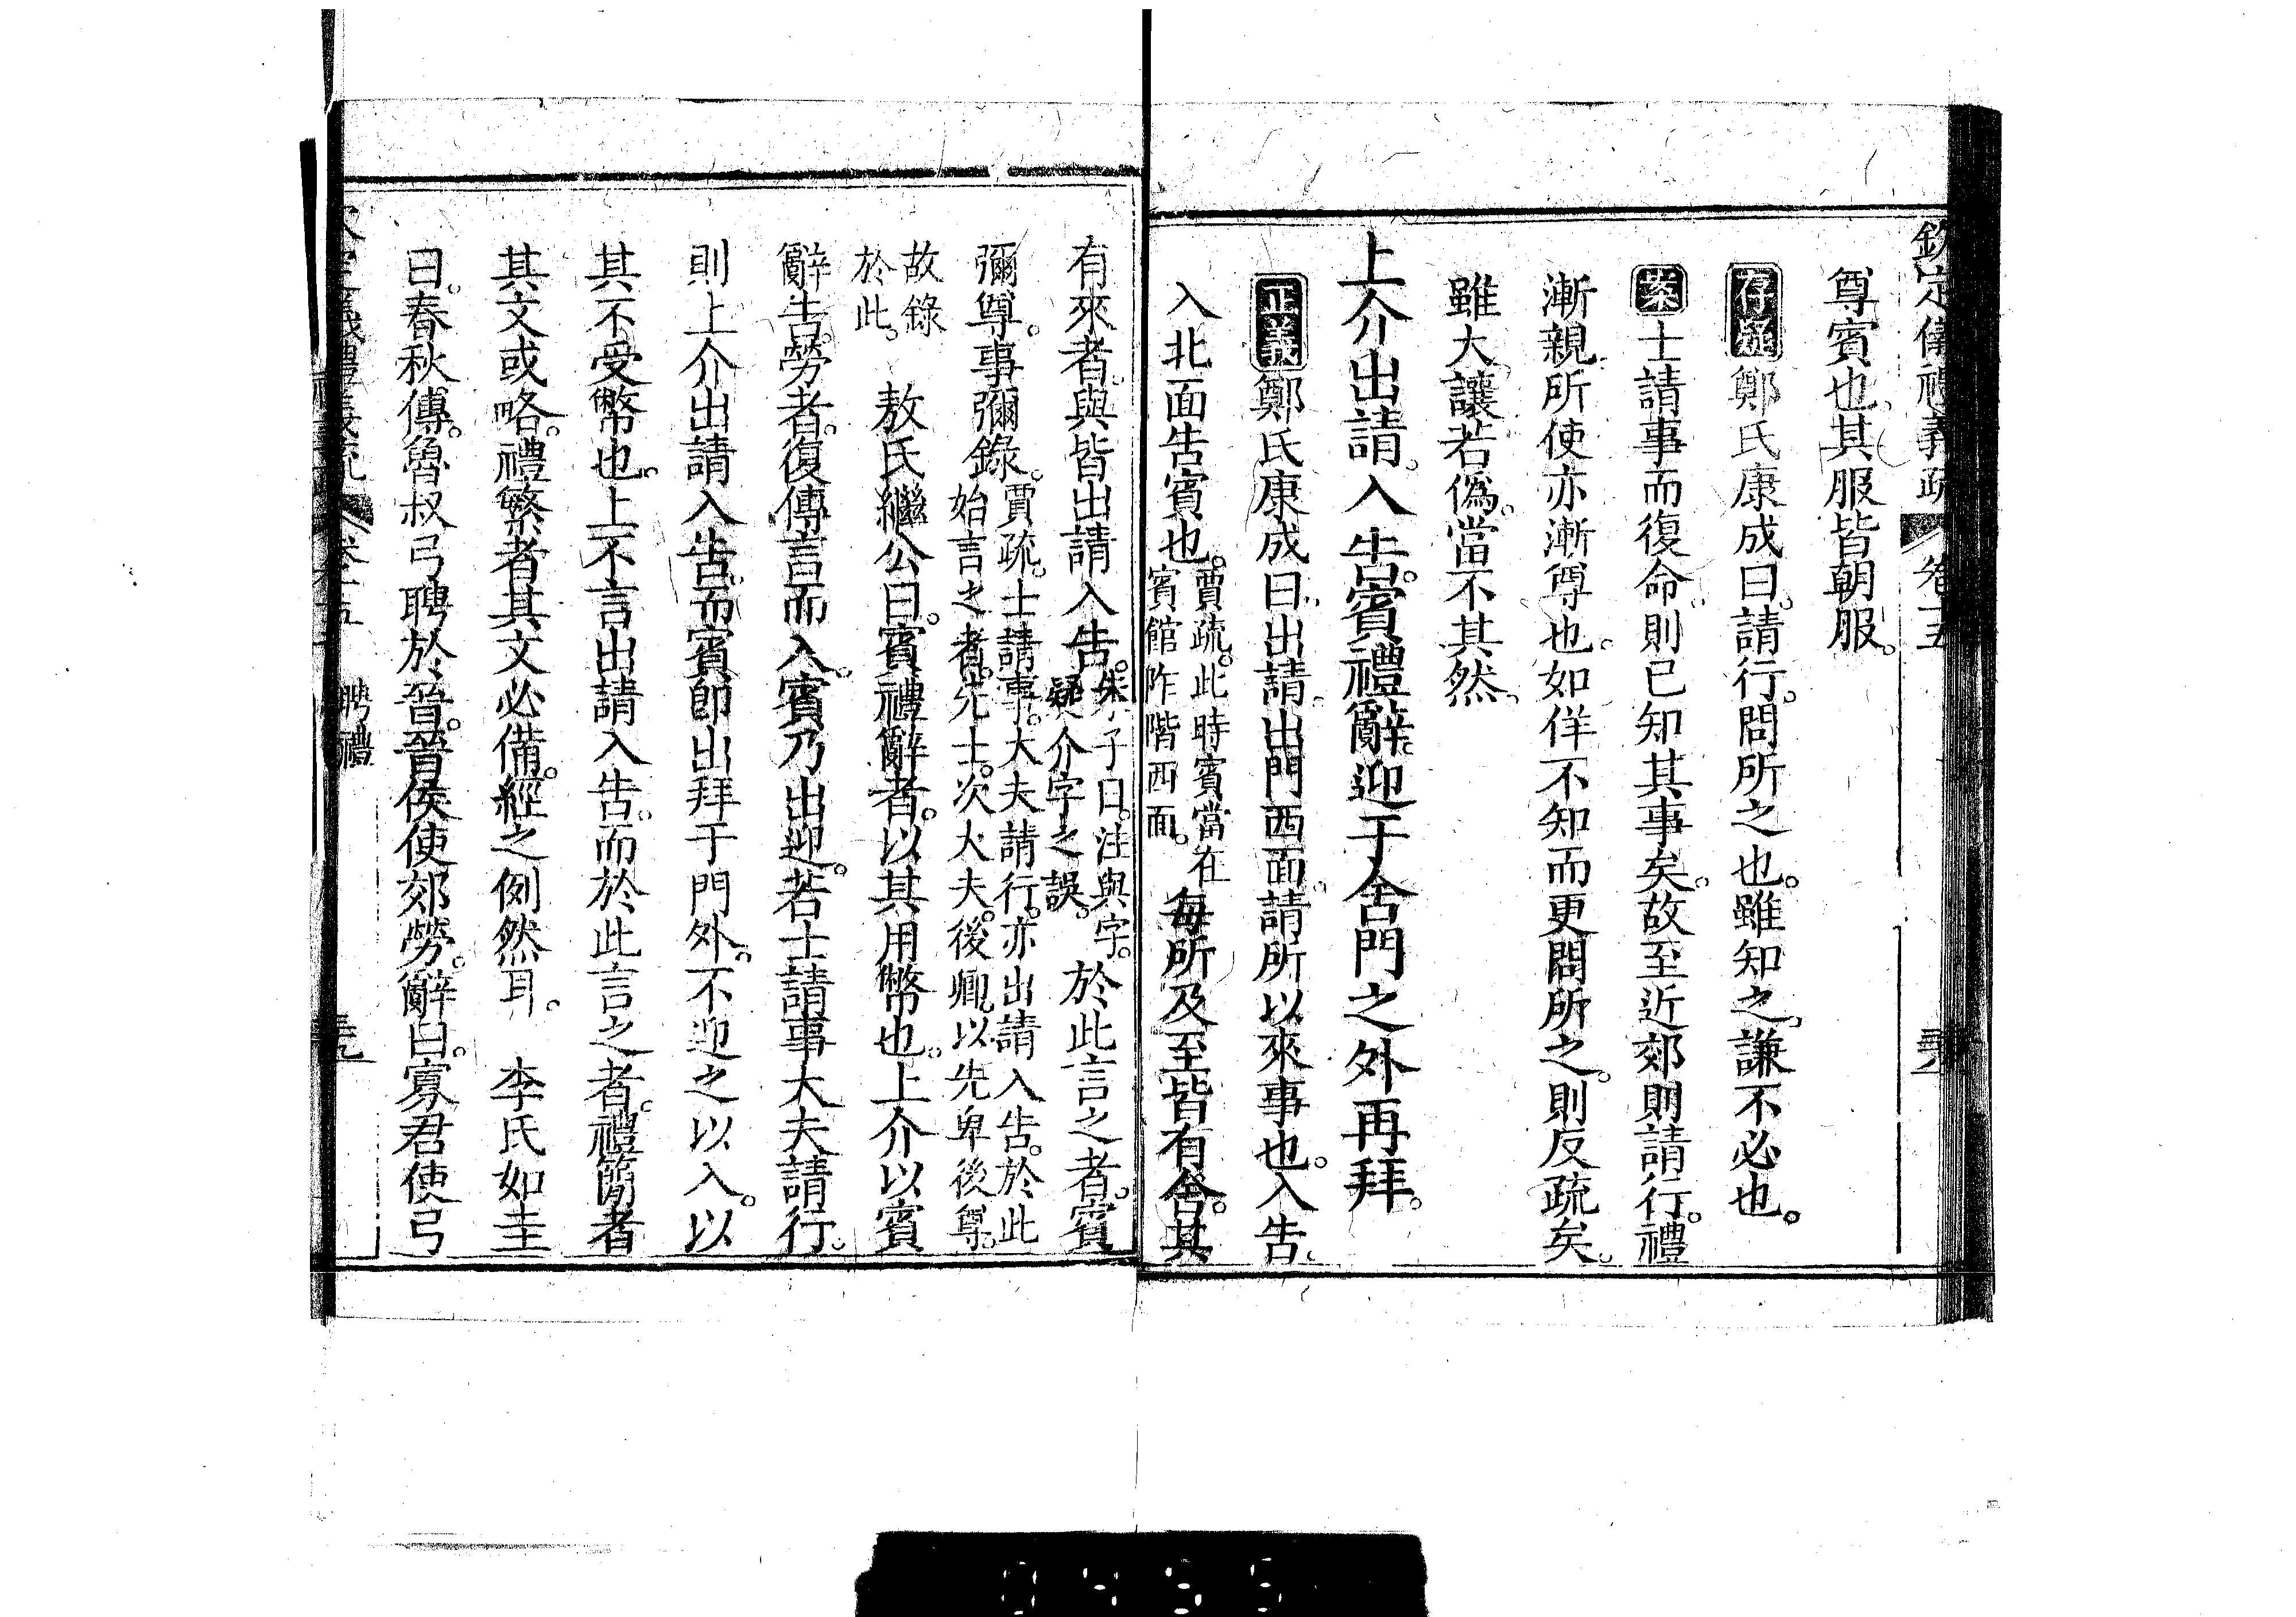 欽定儀禮義疏 卷十五
尊賓也。其服皆朝服。
存疑鄭氏康成曰。請行。問所之也。雖知之。謙不必也。
案士請事而復命。則已知其事矣。故至近郊則請行。禮
漸親。所使亦漸尊也。如佯不知而更問所之。則反疏矣。
雖大讓若僞。當不其然。
上介出請。入告。賓禮辭。迎于舍門之外再拜。
正義鄭氏康成曰。出請。出門西面。請所以來事也。入告。
入北面告賓也。賈疏。此時賓當在
賓館阼階西面。每所及至皆有舍。其
有來者與皆出請入告。朱子曰。注與字。
疑介字之誤。於此言之者。賓
彌尊。事彌錄。賈疏。士請事。大夫請行。亦出請入告。於此
始言之者。先士。次大夫。後卿。以先卑後尊。
故錄
於此。 敖氏繼公曰。賓禮辭者。以其用幣也。上介以賓
辭告。勞者復傳言而入。賓乃出迎。若士請事大夫請行。
則上介出請入告。而賓卽出拜于門外。不迎之以入。以
其不受幣也。上不言出請入告。而於此言之者。禮簡者
其文或略。禮繁者其文必備。經之例然耳。 李氏如圭
曰。春秋傳。魯叔弓聘於晉。晉侯使郊勞。辭曰。寡君使弓
聘禮